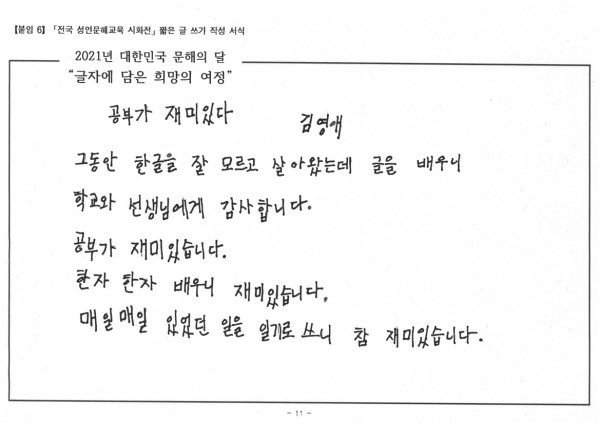 【붙임 6】「전국 성인문해교육 시화전」 짧은 글 쓰기 작성 서식
2021년 대한민국 문해의 달
“글자에 담은 희망의 여정”
공부가 재미있다
김영애
그동안 한글을 잘 모르고 살아왔는데 글을 배우니
학교와 선생님에게 감사합니다.
공부가 재미있습니다.
한자 한자 배우니 재미있습니다.
매일매일 있었던 일을 일기로 쓰니 참 재미있습니다.
- 11 -